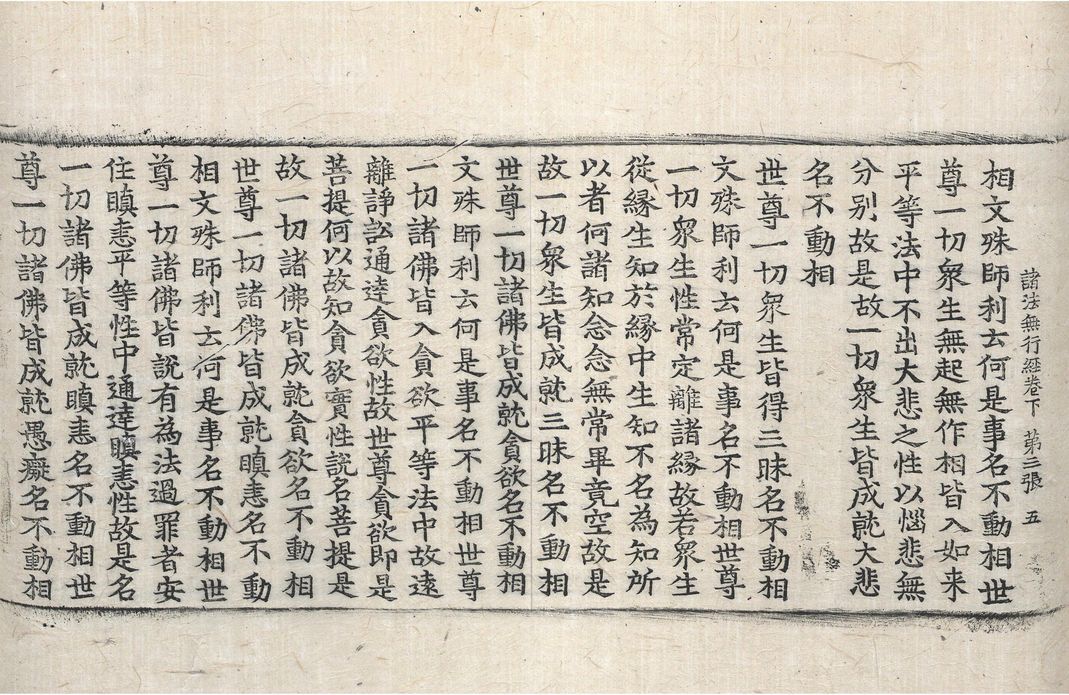 諸法無行經卷下 第三張 五
相文殊師利云何是事名不動相世
尊一切衆生無起無作相皆入如来
平等法中不出大悲之性以惱悲無
分別故是故一切衆生皆成就大悲
名不動相
世尊一切衆生皆得三昧名不動相
文殊師利云何是事名不動相世尊
一切衆生性常定離諸縁故若衆生
從縁生知於縁中生知不名為知所
以者何諸知念念無常畢竟空故是
故一切衆生皆成就三昧名不動相
世尊一切諸佛皆成就貪欲名不動相
文殊師利云何是事名不動相世尊
一切諸佛皆入貪欲平等法中故遠
離諍訟通達貪欲性故世尊貪欲即是
菩提何以故知貪欲實性說名菩提是
故一切諸佛皆成就貪欲名不動相
世尊一切諸佛皆成就瞋恚名不動
相文殊師利云何是事名不動相世
尊一切諸佛皆說有為法過罪者安
住瞋恚平等性中通達瞋恚性故是名
一切諸佛皆成就瞋恚名不動相世
尊一切諸佛皆成就愚癡名不動相